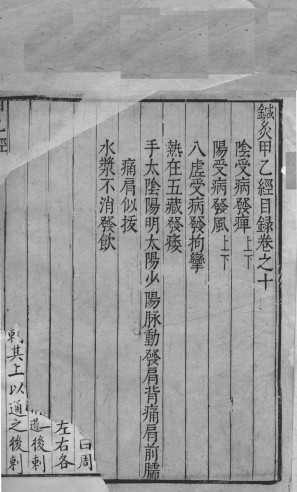 鍼灸甲乙經目録卷之十
陰受病發痺上下
陽受病發風上下
八虛受病發拘攣
熱在五藏發痿
手太陰陽明太陽少陽脉動發肩背痛肩前臑
痛肩似拔
水漿不消發飲
周
左右各
後刺
刺其上以通之後刺
甲乙經